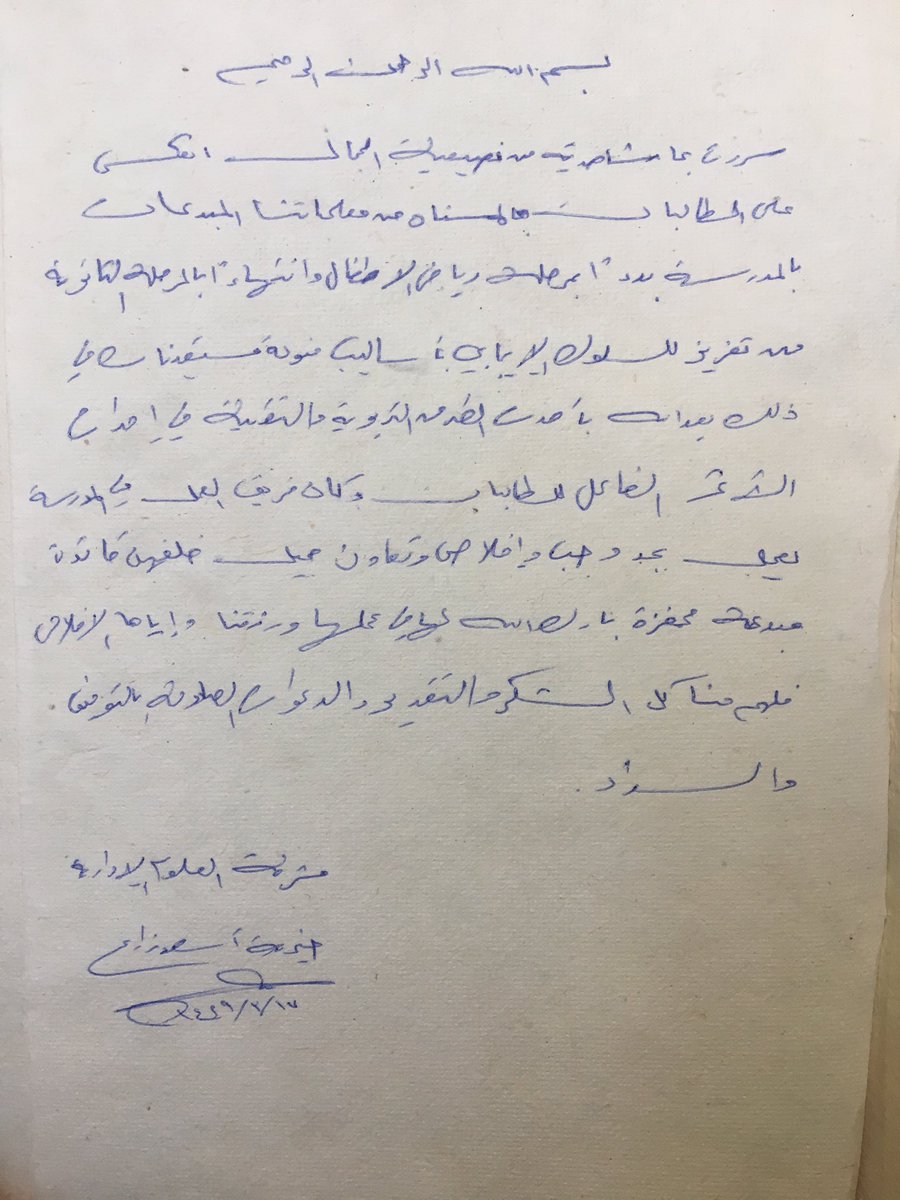 بسم الله الرحمن الرحيم .
سررت بما شاهدته من خصوصية الجمال انعكس
على الطالبات من معلماتنا المبدعات
بالمدرسة بدءاً بمرحلة رياض الاطفال وانتهاءاً بالمرحلة الثانوية
من تعزيز للسلوك الإيجابي بأساليب منوعة مستفيدات في
ذلك بأحدث الطرق التربوية والتقنية في إحداث
الفاعل للطالبات وكان فريق العمل في المدرسة
يعمل بجد وحب وإخلاص وتعاون جميل خلفهن قائدة
مبدعة محفزة بارك الله لها في عملها ورزقنا وإياها الإخلاص
فلهم منا كل الشكر والتقدير والدعوات الصادقة بالتوفيق
والسداد .
مشرفة العلوم الإدارية